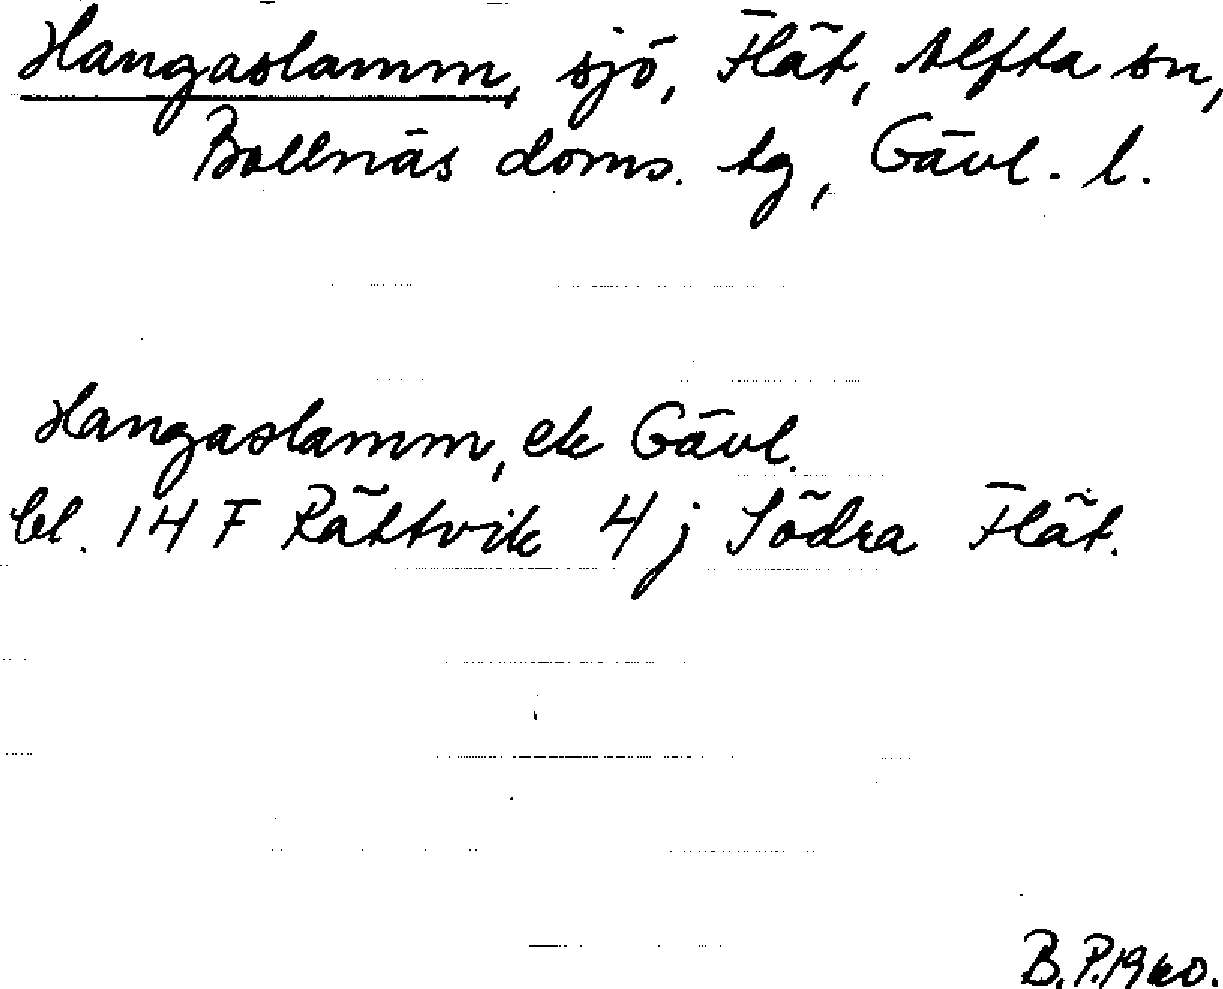 Hangaslamm, sjö, Flät, Alfta sn,
Bollnäs doms. tg, Gävl. l.
Hangaslamm, ek Gävl.
bl. 14 F Rättvik 4 j Södra Flät.
B.P. 1960.